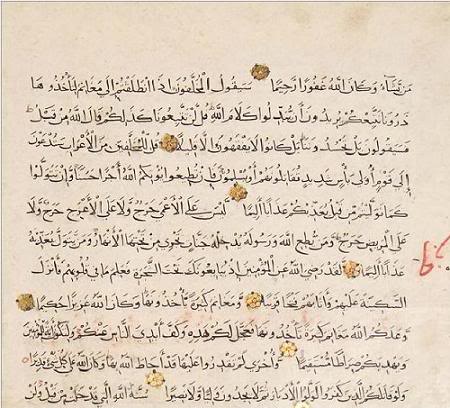 من يشاء وكان الله غفورا رحيما سيقول المخلفون اذا انطلقتم إلى مغانم لتأخذوها
ذرونا نتبعكم يريدون أن يبدلوا كلام الله قل لن تتبعونا كذلكم قال الله من قبل
فسيقولون بل تحسدوننا بل كانوا لا يفقهون إلا قليلا قل للمخلفين من الأعراب ستدعون
إلى قوم أولي بأس شديد تقاتلونهم أو يسلمون فإن تطيعوا يؤتكم الله أجرا حسنا وإن تتولوا
كما توليتم من قبل يعذبكم عذابا أليما ليس على الأعمى حرج ولا على الأعرج حرج ولا
على المريض حرج ومن يطع الله ورسوله يدخله جنات تجري من تحتها الأنهار ومن يتول يعذبه
عذابا أليما لقد رضي الله عن المؤمنين إذ يبايعونك تحت الشجرة فعلم ما في قلوبهم فأنزل
السكينة عليهم وأثابهم فتحا قريبا ومغانم كثيرة يأخذونها وكان الله عزيزا حكيما
وعدكم الله مغانم كثيرة تأخذونها فعجل لكم هذه وكف أيدي الناس عنكم ولتكون آية للمؤمنين
ويهديكم صراطا مستقيما وأخرى لم تقدروا عليها قد أحاط الله بها وكان الله على كل شيء قديرا
ولو قاتلكم الذين كفروا لولوا الأدبار ثم لا يجدون وليا ولا نصيرا سنة الله التي قد خلت من قبل ولن